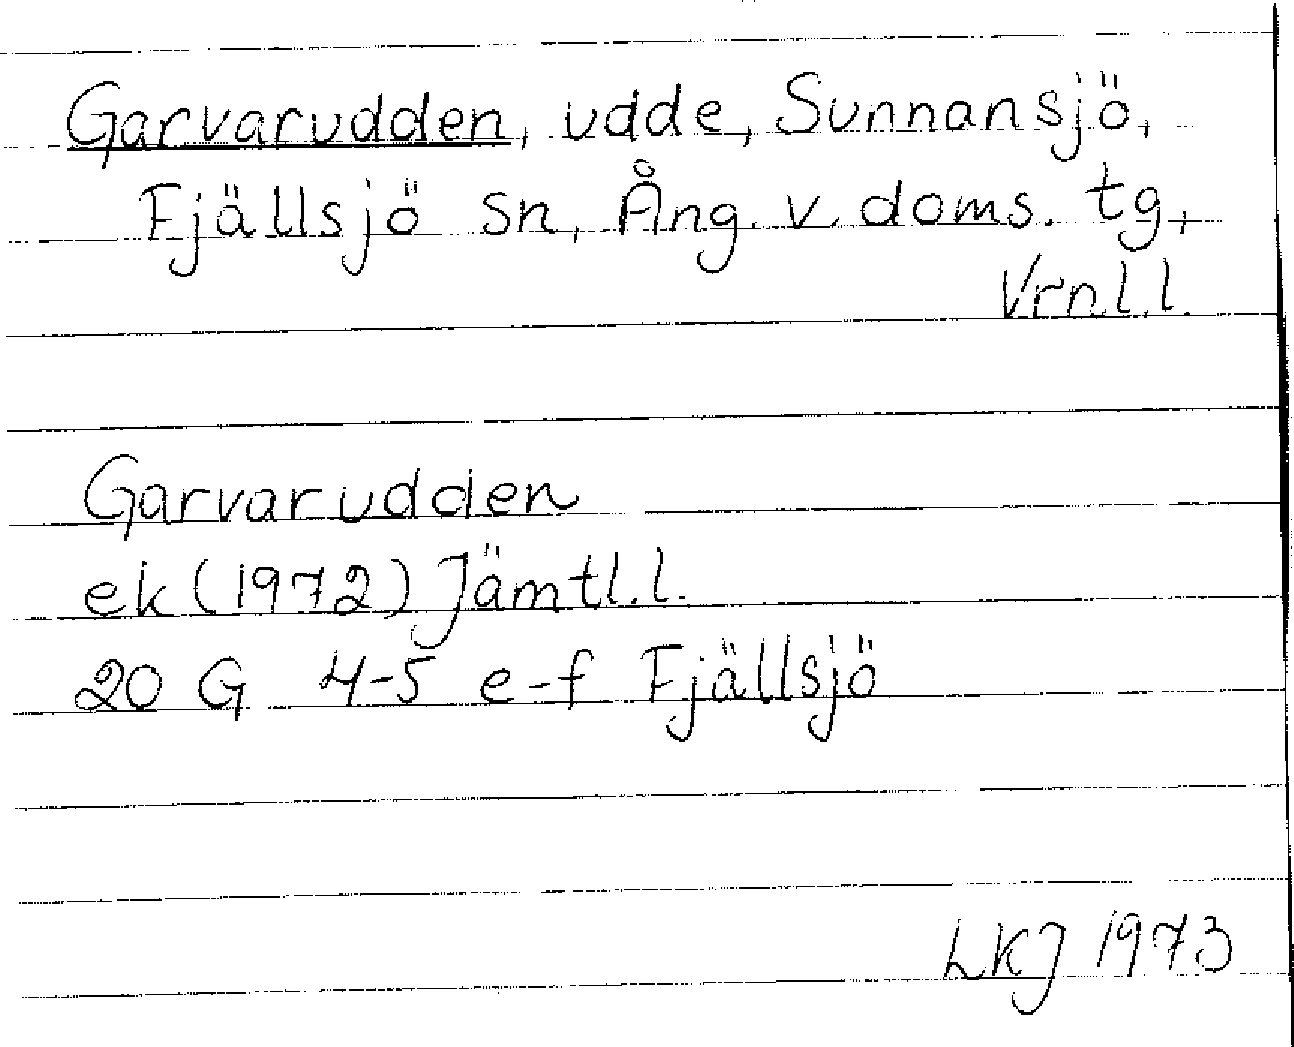 Garvarudden, udde, Sunnansjö,
Fjällsjö sn, Ång. v. doms. tg,
Vrnl.l.
Garvarudden
ek (1972) Jämtl.l.
20 G 4-5 e-f Fjällsjö
LKJ 1973